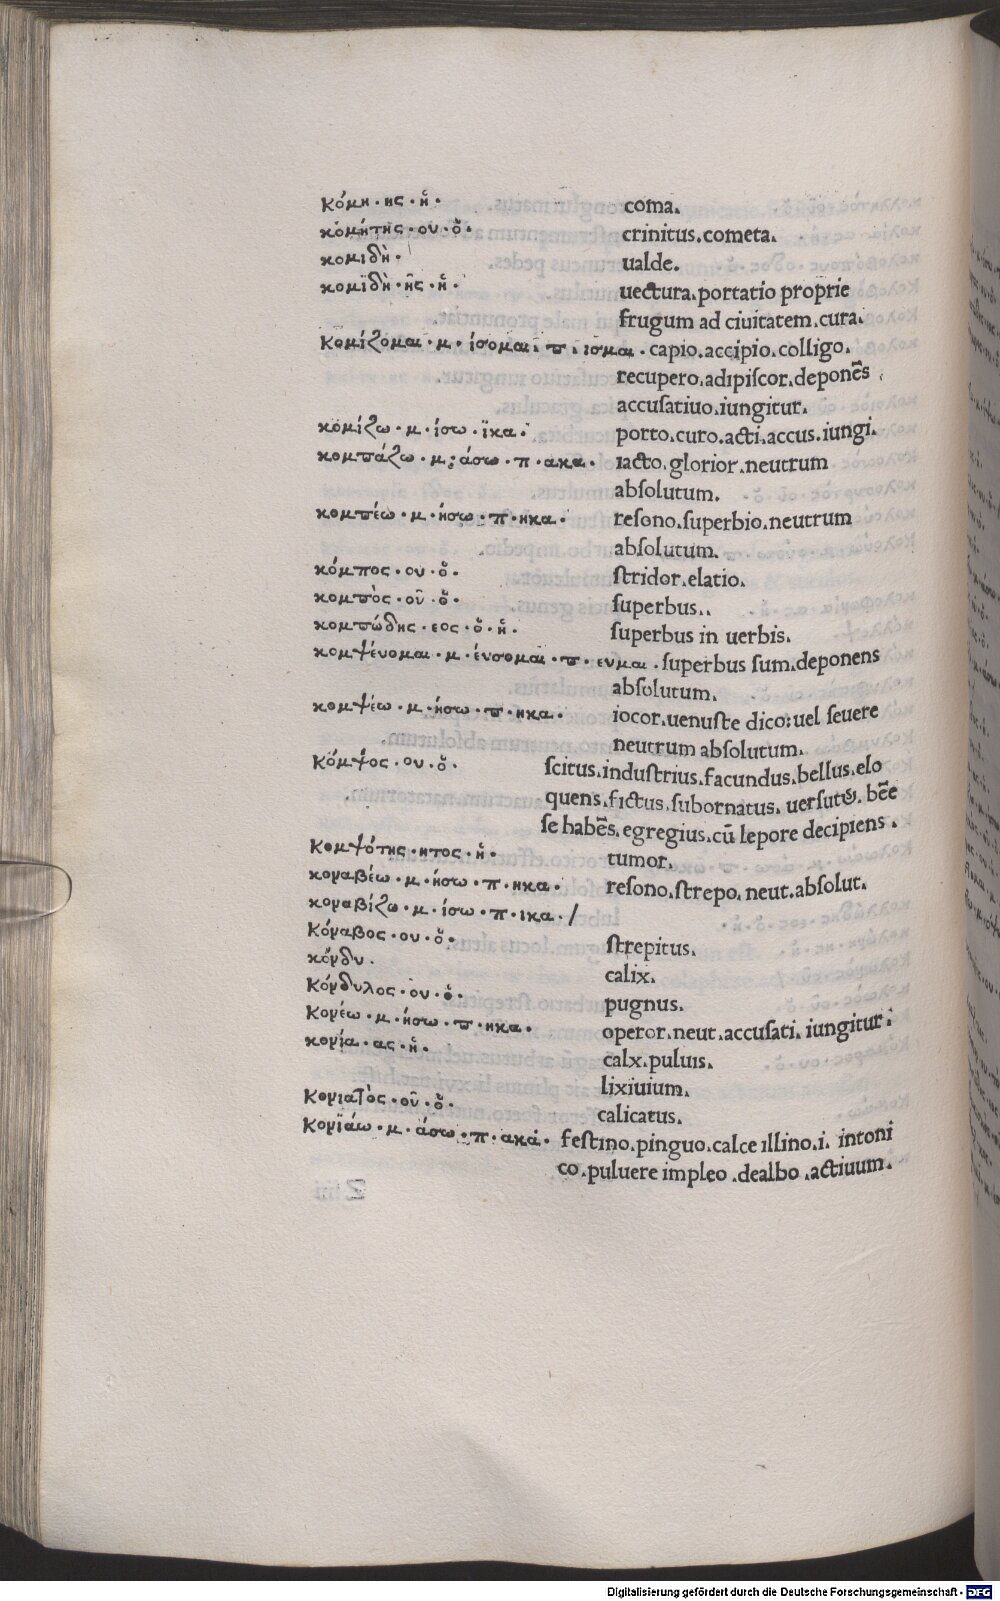 Κόμη · ης · ἡ · coma.
κομήτης · ου · ὁ · crinitus.cometa.
κομιδὴ · ualde.
κομιδὴ · ῆς · ἡ · uectura.portatio proprie
frugum ad ciuitatem.cura.
Κομίζομαι · μ · ίσομαι · π · ισμαι · capio.accipio.colligo.
recupero.adipiſcor.deponēs
accuſatiuo.iungitur.
κομίζω · μ · ίσω · ϊκα · porto.curo.acti.accus.iungi.
κομπάζω · μ · άσω · π · ακα · iacto.glorior.neutrum
abſolutum.
κομπέω · μ · ήσω · π · ηκα · reſono.ſuperbio.neutrum
abſolutum.
κόμπος · ου · ὁ · ſtridor.elatio.
κομπὸς · οῦ · ὁ · ſuperbus..
κομπώδης · εος · ὁ · ἡ · ſuperbus in uerbis.
κομψέυομαι · μ · έυσομαι · π · ευμαι · ſuperbus ſum.deponens
abſolutum.
κομψέω · μ · ήσω · π · ηκα · iocor.uenuſte dico:uel ſeuere
neutrum abſolutum.
Κόμψος · ου · ὁ · ſcitus.induſtrius.facundus.bellus.elo
quens.fictus.ſubornatus. uerſutꝰ. bēe
ſe habēs.egregius.cū lepore decipiens.
Κομψότης · ητος · ἡ · tumor.
κοναβέω · μ · ήσω · π · ηκα · reſono.ſtrepo.neut.abſolut.
κοναβίζω · μ · ίσω · π · ικα · /
Κόναβος · ου · ὁ · ſtrepitus.
κόνδυ · calix.
Κόνδυλος · ου · ὁ · pugnus.
Κονέω · μ · ήσω · π · ηκα · operor.neut.accuſati.iungitur.
κονία · ας · ἡ · calx.puluis.
lixiuium.
Κονιατὸς · οῦ · ὁ · calicatus.
Κονϊάω · μ · άσω · π · ακα · feſtino.pinguo.calce illino.i. intoni
co.puluere impleo.dealbo.actiuum.
Digitalisierung gefördert durch die Deutsche Forschungsgemeinschaft - DFG